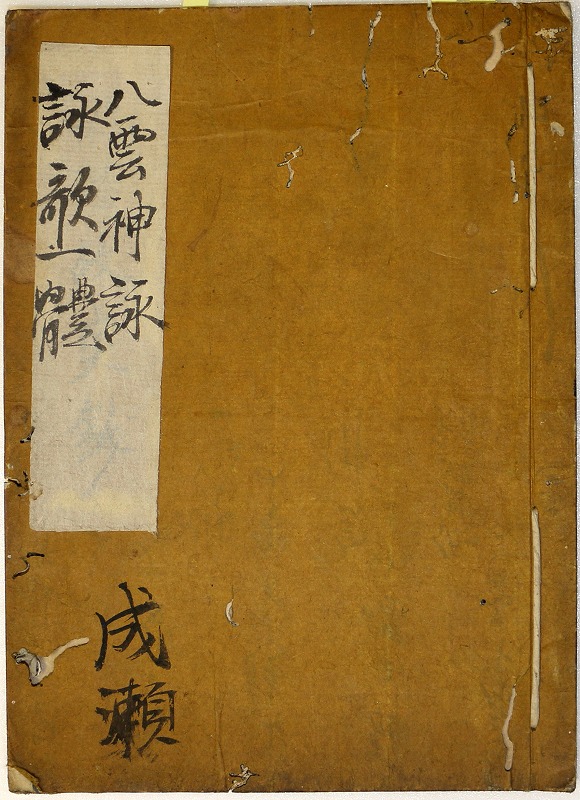 八雲神詠
詠歌一體
成瀬